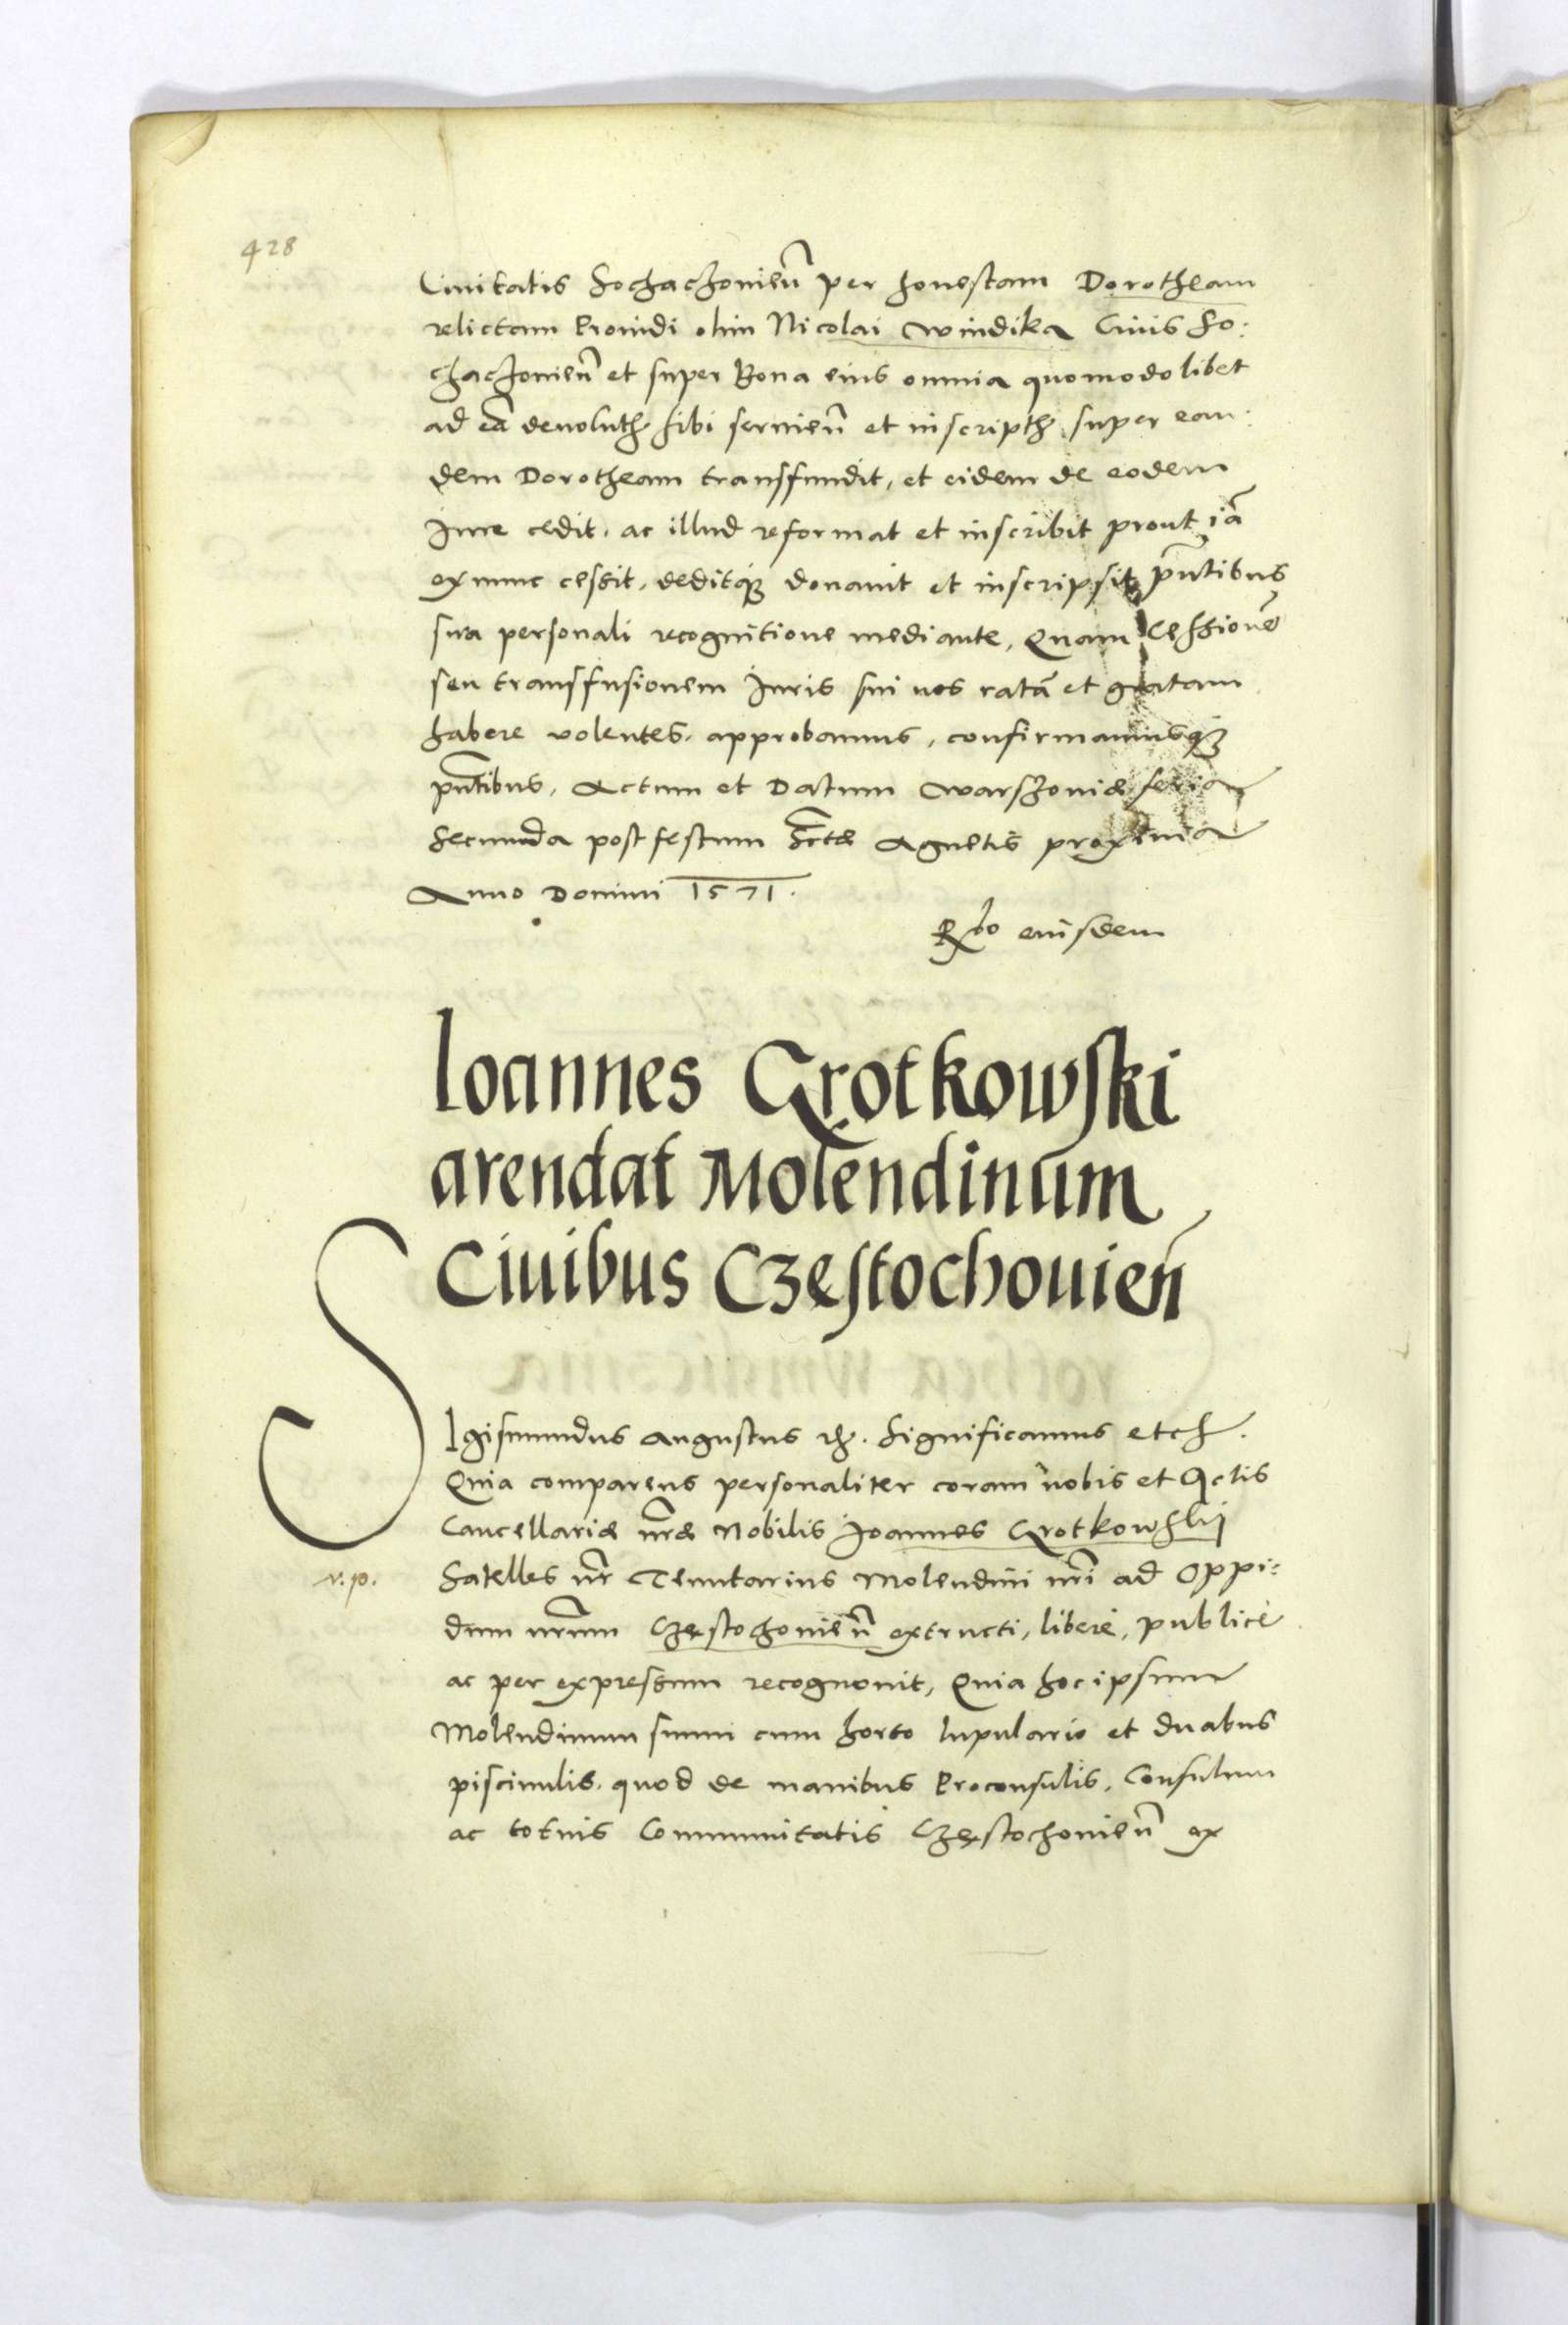 428
Ciuitatis Sochaczouień per honestam Dorotheam
relictam Prouidi olim Nicolai Windika Ciuis So:
chaczouień et super Bona eius omnia quomodolibet
ad eā deuoluth. sibi seruień et inscripth. super ean:
dem Dorotheam transfundit, et eidem de eodem
Iure cedit. ac illud reformat et inscribit prout iā
ex nunc cessit, deditq3 donauit et inscripsit pn̄tibus
sua personali recognitione mediante, Quam Cessionē
seu transfusionem Iuris sui nos ratā et gratam
habere volentes. approbamus, confirmamusq3
pn̄tibus. Actum et Datum Warszouiæ feria
Secunda post festum Sctæ Agnetis proxima
Anno Domini 1571.
Rłō eiusdem
Ioannes Grotkowski
arendat Molendinum
Ciuibus Czestochouień
SIgismundus Augustus rh. Significamus etch.
Quia comparens personaliter coram nobis et Actis
Cancellariæ nræ Nobilis Joannes Grotkowskij
Satelles nr̄ Tenutarius Molendini nrī ad Oppi:
v. 10.
dum nrūm Częstochouień extructi, liberè, publicè
ac per expressum recognouit, Quia hoc ipsum
Molendinum suum cum horto lupulario et duabus
piscinulis. quod de manibus Proconsulis, Consulum
ac totius Communitatis Częstochouień ex